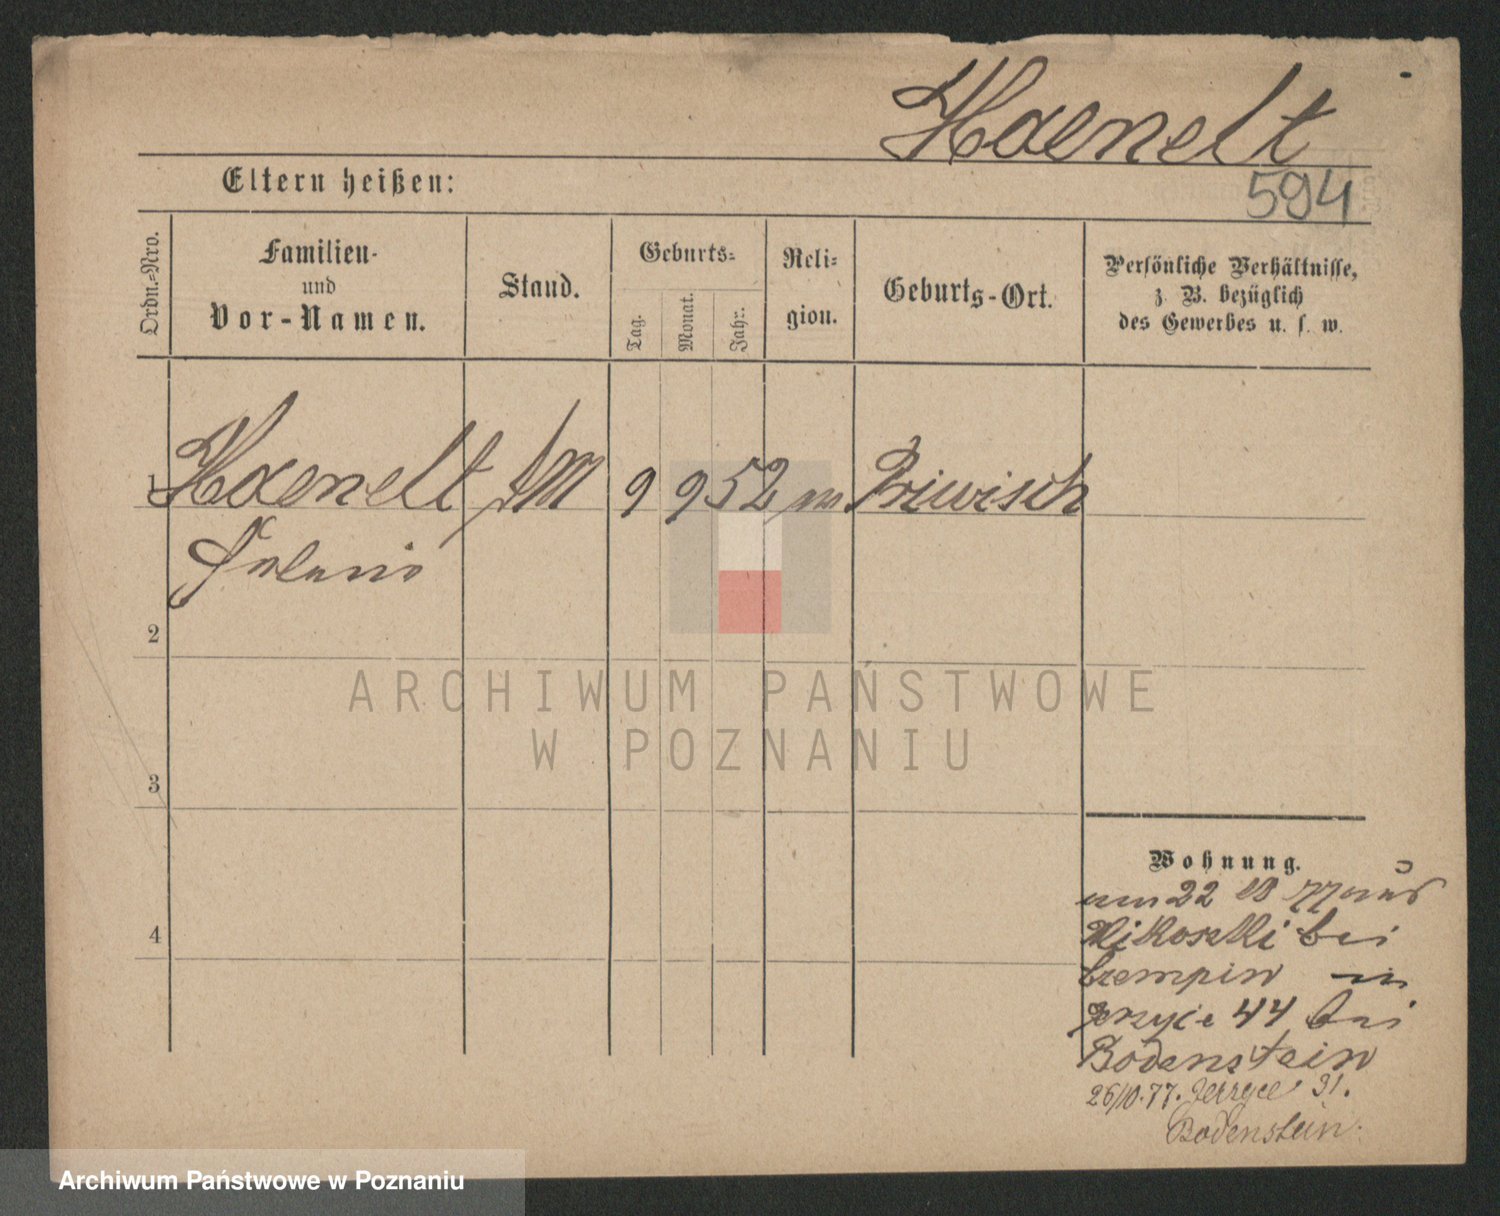 Haenelt
594
Eltern heißen:
Ordn.-Nro.
Familien-
und
Vor-Namen.
Stand.
Geburts-
Tag.
Monat.
Jahr.
Reli-
gion.
Geburts-Ort.
Persönliche Verhältnisse,
z. B. bezüglich
des Gewerbes u. s. w.
1 Haenelt 9 9 52 Priwisch
2
3
4
ARCHIWUM PAŃSTWOWE
W POZNANIU
Wohnung.
22 77 aus
bei
Czempin in
Jerzyce 44 bei
Bodenstein
26/10.77. Jerzyce 31.
Bodenstein.
Archiwum Państwowe w Poznaniu